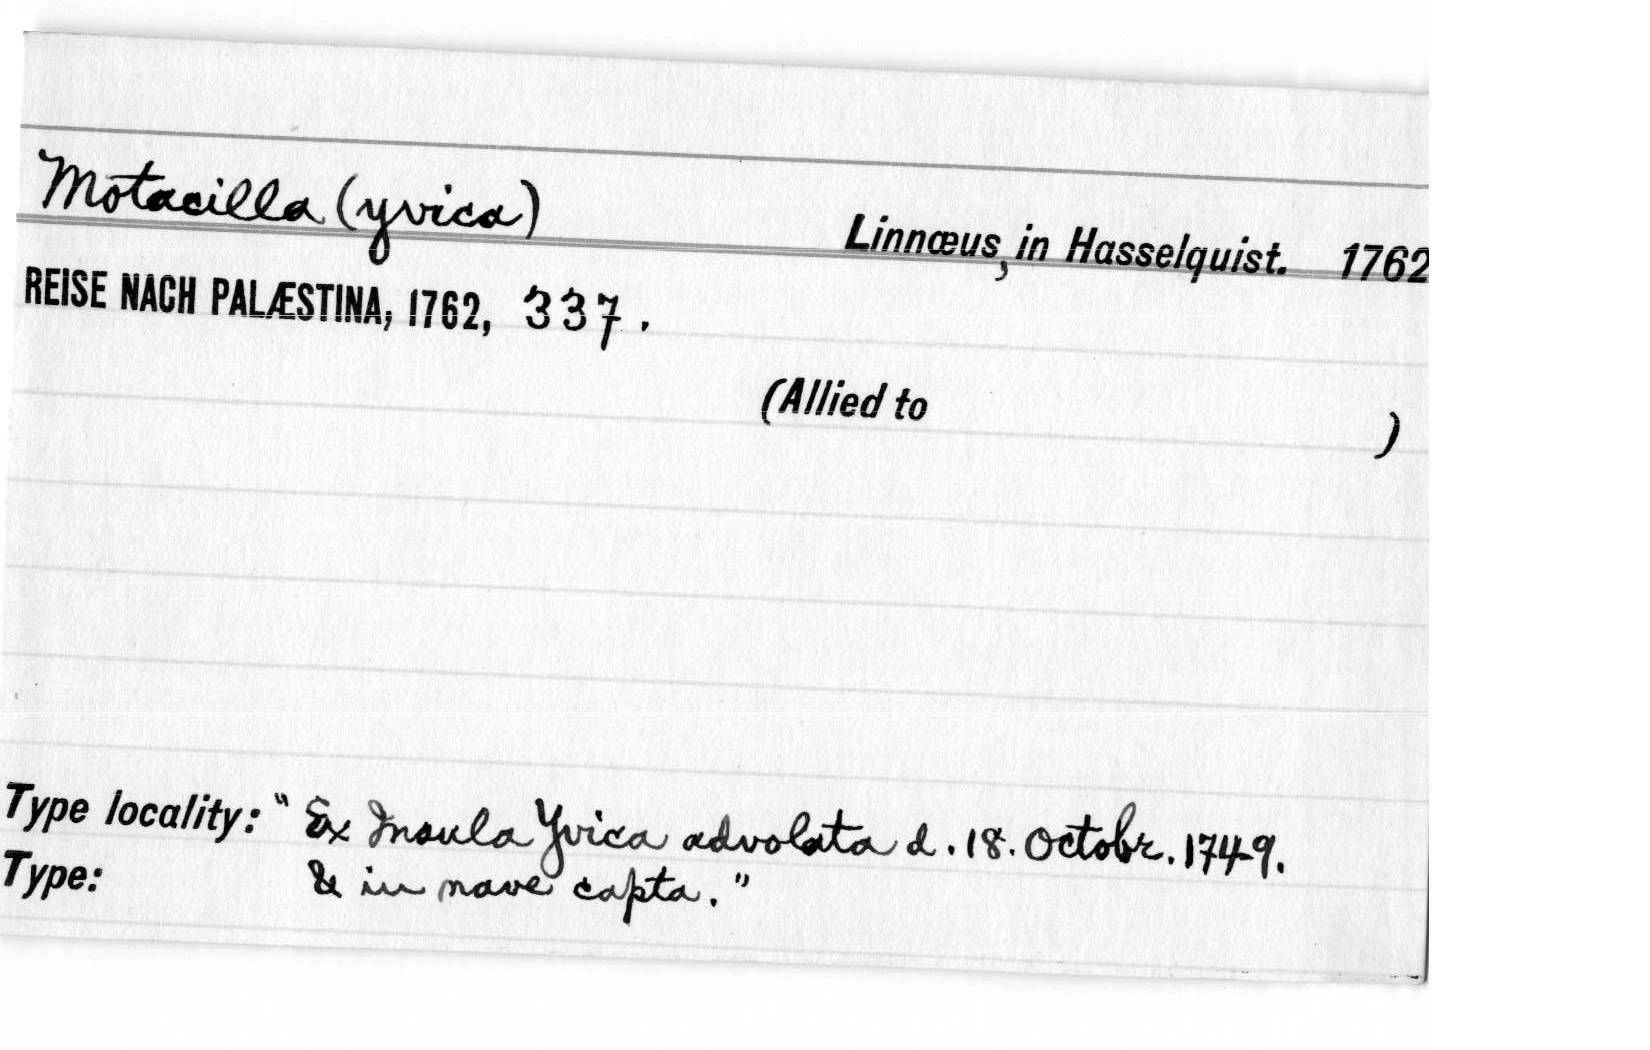 Motacilla (yvica)
Linnæus, in Hasselquist. 1762
REISE NACH PALÆSTINA, 1762, 337.
(Allied to )
Type locality: "Ex Insula Yvica advolata d. 18. Octobr. 1749.
Type: & in nave capta."